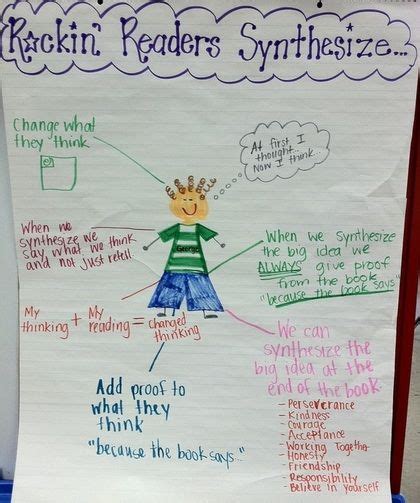 Rockin' Readers Synthesize...
Change what
they think
At first I
thought...
Now I think...
When we
synthesize we
say what we think
and not just retell
When we synthesize
the big idea we
ALWAYS give proof
from the book
"because the book says"
My
thinking
+
My
reading
=
changed
thinking
We can
synthesize the
big idea at the
end of the book.
- Perseverance
- Kindness
- Courage
- Acceptance
- Working Together
- Honesty
- Friendship
- Responsibility
- Believe in yourself
Add proof to
what they
think
"because the book says..."